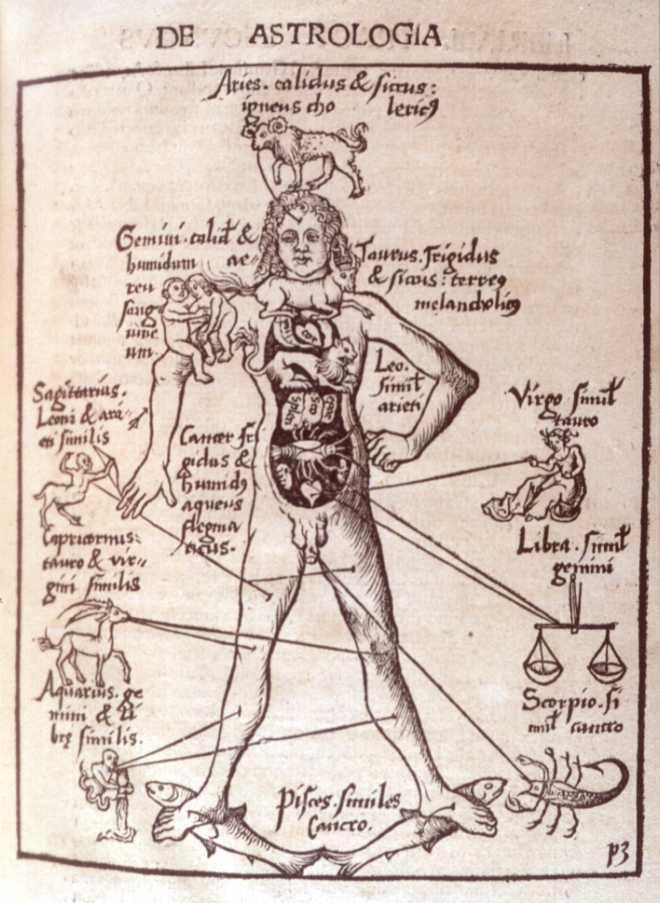 DE ASTROLOGIA
Aries. calidus & siccus:
igneus cho lericꝰ
Gemini. calid⁹ &
humidum ae-
reu
sang
uine
um.
Taurus. frigidus
& siccus: terreꝰ
melancholicꝰ
Leo.
simil
arieti
Sagittarius.
Leoni & arie
ti similis
Virgo simil
tauro
Cancer fri
gidus &
humidꝰ
aqueus
flegma
ticus.
Capricornus:
tauro & vir-
gini similis
Libra. simil
gemini
Aquarius. ge
mini & li
brę similis.
Scorpio. si
mil cancro
Pisces. similes
Cancro.
p3